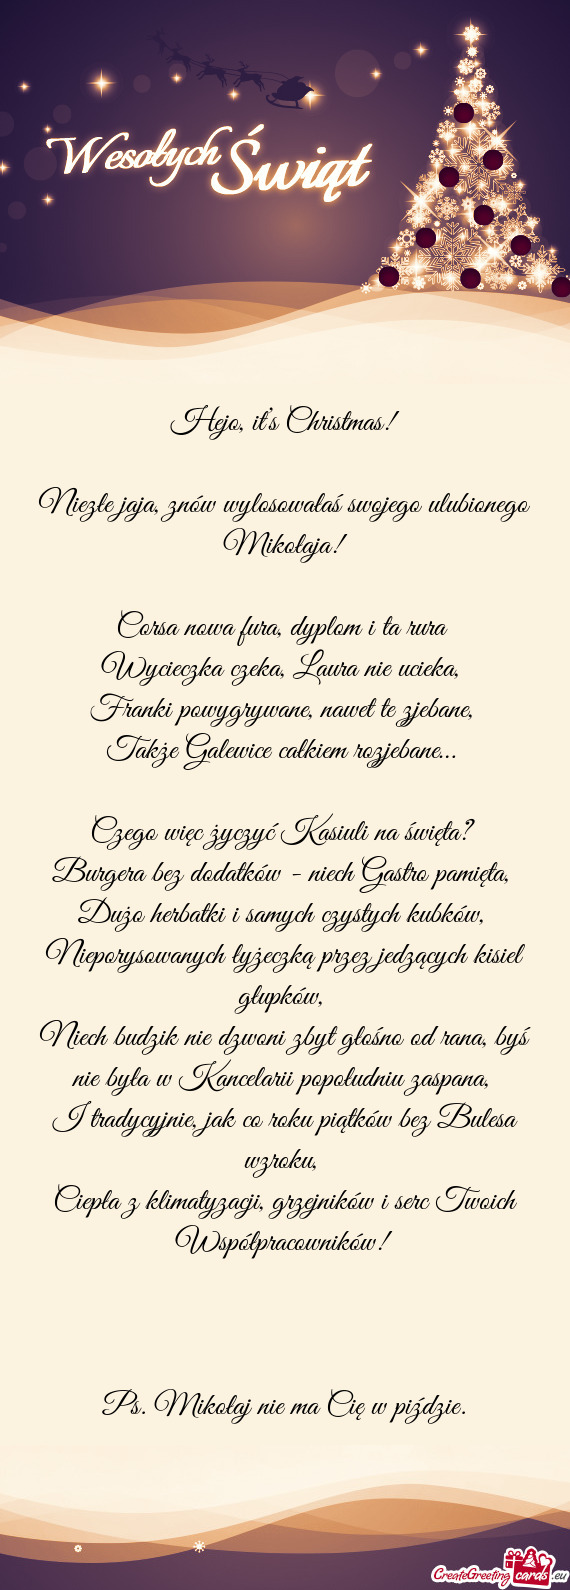 Wesołych Świąt
Hejo, it's Christmas!
Niezłe jaja, znów wylosowałaś swojego ulubionego
Mikołaja!
Corsa nowa fura, dyplom i ta rura
Wycieczka czeka, Laura nie ucieka,
Franki powygrywane, nawet te zjebane,
Także Galewice całkiem rozjebane...
Czego więc życzyć Kasiuli na święta?
Burgera bez dodatków - niech Gastro pamięta,
Dużo herbatki i samych czystych kubków,
Nieporysowanych łyżeczką przez jedzących kisiel
głupków,
Niech budzik nie dzwoni zbyt głośno od rana, byś
nie była w Kancelarii popołudniu zaspana,
I tradycyjnie, jak co roku piątków bez Bulesa
wzroku,
Ciepła z klimatyzacji, grzejników i serc Twoich
Współpracowników!
Ps. Mikołaj nie ma Cię w piździe.
CreateGreetingcards.eu